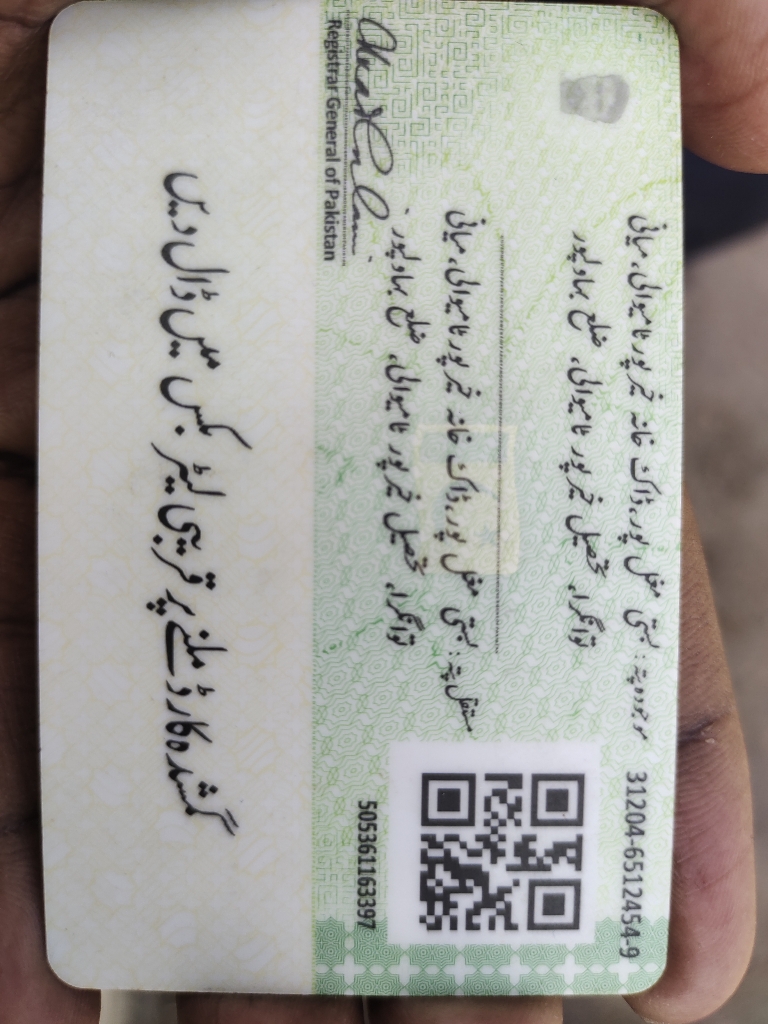 31204-6512454-9
موجودہ پتہ: بستی مغل پور، ڈاک خانہ خیر پور ٹامیوالی، میانی
توانگرا، تحصیل خیر پور ٹامیوالی، ضلع بہاولپور
مستقل پتہ: بستی مغل پور، ڈاک خانہ خیر پور ٹامیوالی، میانی
توانگرا، تحصیل خیر پور ٹامیوالی، ضلع بہاولپور
505361163397
Registrar General of Pakistan
گمشدہ کارڈ ملنے پر قریبی لیٹر بکس میں ڈال دیں